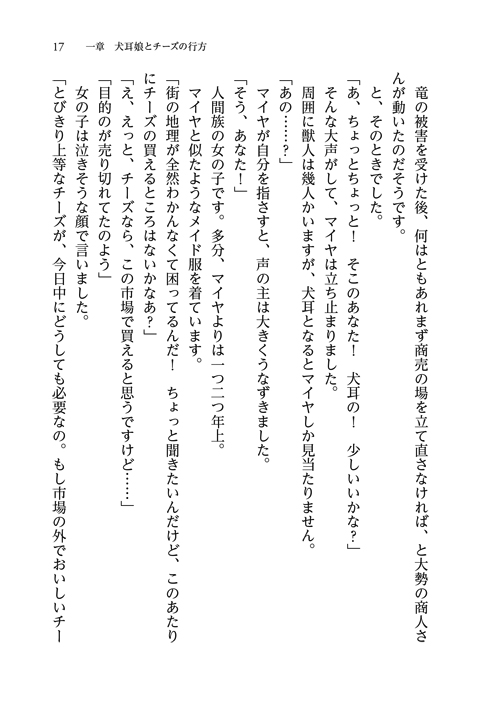 17　一章　犬耳娘とチーズの行方
　竜の被害を受けた後、何はともあれまず商売の場を立て直さなければ、と大勢の商人さ
んが動いたのだそうです。
　と、そのときでした。
「あ、ちょっとちょっと！　そこのあなた！　犬耳の！　少しいいかな？」
　そんな大声がして、マイヤは立ち止まりました。
　周囲に獣人は幾人かいますが、犬耳となるとマイヤしか見当たりません。
「あの……？」
　マイヤが自分を指さすと、声の主は大きくうなずきました。
「そう、あなた！」
　人間族の女の子です。多分、マイヤよりは一つ二つ年上。
　マイヤと似たようなメイド服を着ています。
「街の地理が全然わかんなくて困ってるんだ！　ちょっと聞きたいんだけど、このあたり
にチーズの買えるところはないかなあ？」
「え、えっと、チーズなら、この市場で買えると思うですけど……」
「目的のが売り切れてたのよう」
　女の子は泣きそうな顔で言いました。
「とびきり上等なチーズが、今日中にどうしても必要なの。もし市場の外でおいしいチー